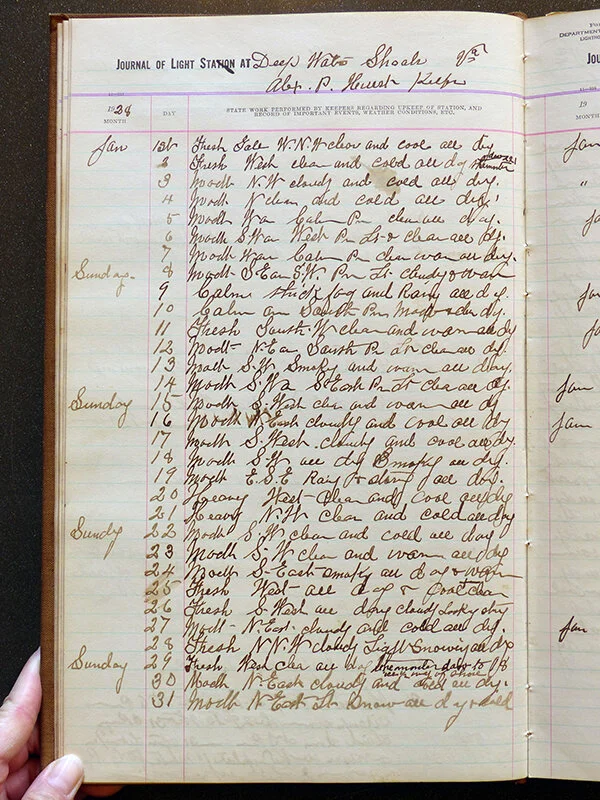 JOURNAL OF LIGHT STATION AT Deep Water Shoals Va
Alex. P. Hurst Keeper
1928
MONTH DAY STATE WORK PERFORMED BY KEEPERS REGARDING UPKEEP OF STATION, AND
RECORD OF IMPORTANT EVENTS, WEATHER CONDITIONS, ETC.
Jan 1st Fresh Gale W.N.W clear and cool all dy
2 Fresh West clear and cold all dy
3 Modt N.W cloudy and cold all dy.
4 Modt N clear and cold all dy.
5 Modt W am Calm Pm clear all day.
6 Modt S.W am West Pm Lt & clear all dy.
7 Modt W am Calm Pm clear warm all dy.
Sunday. 8 Modt S.E am S.W Pm Lt cloudy & warm
9 Calm thick fog and Rainy all dy.
10 Calm am South Pm Modt
11 Fresh South W clear and warm all dy
12 Modt N.E am South Pm Lt clear all dy.
13 Modt S.W. Smoky and warm all day.
14 Modt S.W am S East Pm Lt clear all dy.
Sunday 15 Modt S. West clear and warm all dy
16 Modt East cloudy and cool all dy
17 Modt S. West cloudy and cool all dy.
18 Modt S.W. all dy Smoky all dy.
19 Modt E.S.E Rainy & all dy.
20 Heavy West Clear and cool all dy
21 Heavy N.W. clear and cold all dy
Sundy 22 Modt S.W clear and cold all day
23 Modt S.W clear and warm all dy
24 Modt S East smoky all day & warm
25 Fresh West all day & cool clear
26 Fresh S. West all day cloudy
27 Modt N.East. cloudy and cold all dy.
28 Fresh N.N.W cloudy Light Snowing all dy
Sunday 29 Fresh West clear all day
30 Modt N. East cloudy and cold all dy.
31 Modt N. East Lt Snow all day & cold
FOR
DEPARTMENT
LIGHTHO
JOU
19
MONTH
Jan
"
Jan
Jan
Jan